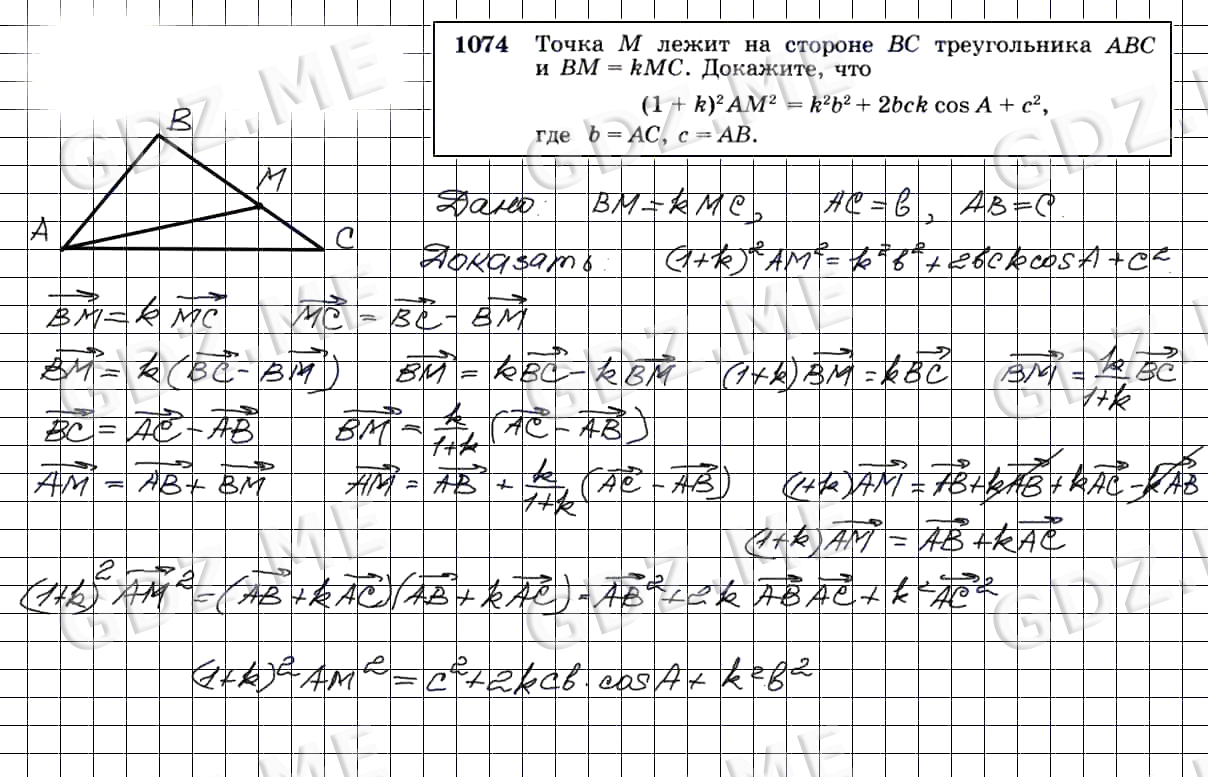 1074 Точка M лежит на стороне BC треугольника ABC
и BM = kMC. Докажите, что
(1 + k)²AM² = k²b² + 2bck cos A + c²,
где b = AC, c = AB.
B
M
A
C
Дано: BM = kMC, AC = b, AB = c
Доказать: (1+k)²AM² = k²b² + 2bck cosA + c²
BM⃗ = k MC⃗ MC⃗ = BC⃗ - BM⃗
BM⃗ = k(BC⃗ - BM⃗) BM⃗ = kBC⃗ - kBM⃗ (1+k)BM⃗ = kBC⃗ BM⃗ = k/(1+k) BC⃗
BC⃗ = AC⃗ - AB⃗ BM⃗ = k/(1+k) (AC⃗ - AB⃗)
AM⃗ = AB⃗ + BM⃗ AM⃗ = AB⃗ + k/(1+k) (AC⃗ - AB⃗) (1+k)AM⃗ = AB⃗ + kAB⃗ + kAC⃗ - kAB⃗
(1+k)AM⃗ = AB⃗ + kAC⃗
(1+k)² AM⃗² = (AB⃗ + kAC⃗)(AB⃗ + kAC⃗) = AB⃗² + 2k AB⃗ AC⃗ + k² AC⃗²
(1+k)² AM² = c² + 2kcb · cosA + k²b²
GDZ.ME
GDZ.ME
GDZ.ME
GDZ.ME
GDZ.ME
GDZ.ME
GDZ.ME
GDZ.ME
GDZ.ME
GDZ.ME
GDZ.ME
GDZ.ME